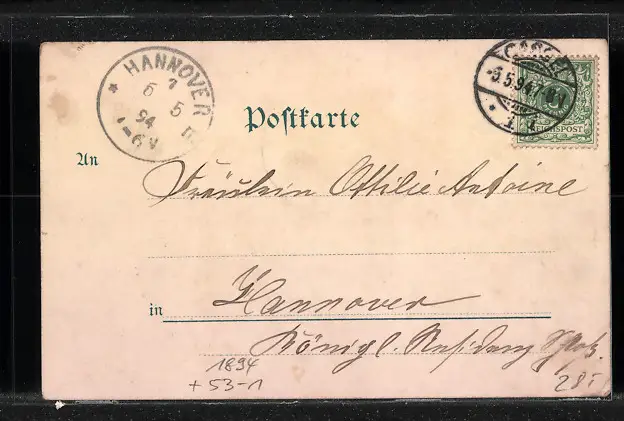 * HANNOVER 1
6 5
94
1-6 V
CASSEL
-5.5.94.7-8N
REICHSPOST
Postkarte
An
Fräulein Ottilie Antoine
in Hannover
Königl. Residenz Schloß.
1894
+ 53-1
28,-